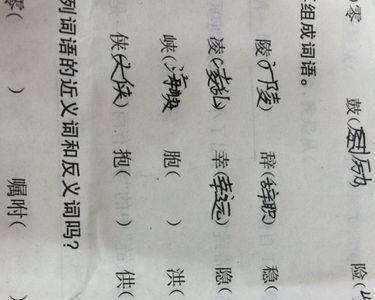 )零 鼓( 险(
组成词语。
陵(广陵) 辞(辞职) 稳(
凌(凌乱) 幸(幸运) 隐(
峡(海峡 胞( ) 洪(
侠(大侠) 抱( ) 供(
列词语的近义词和反义词吗?
零( ) 嘱咐(